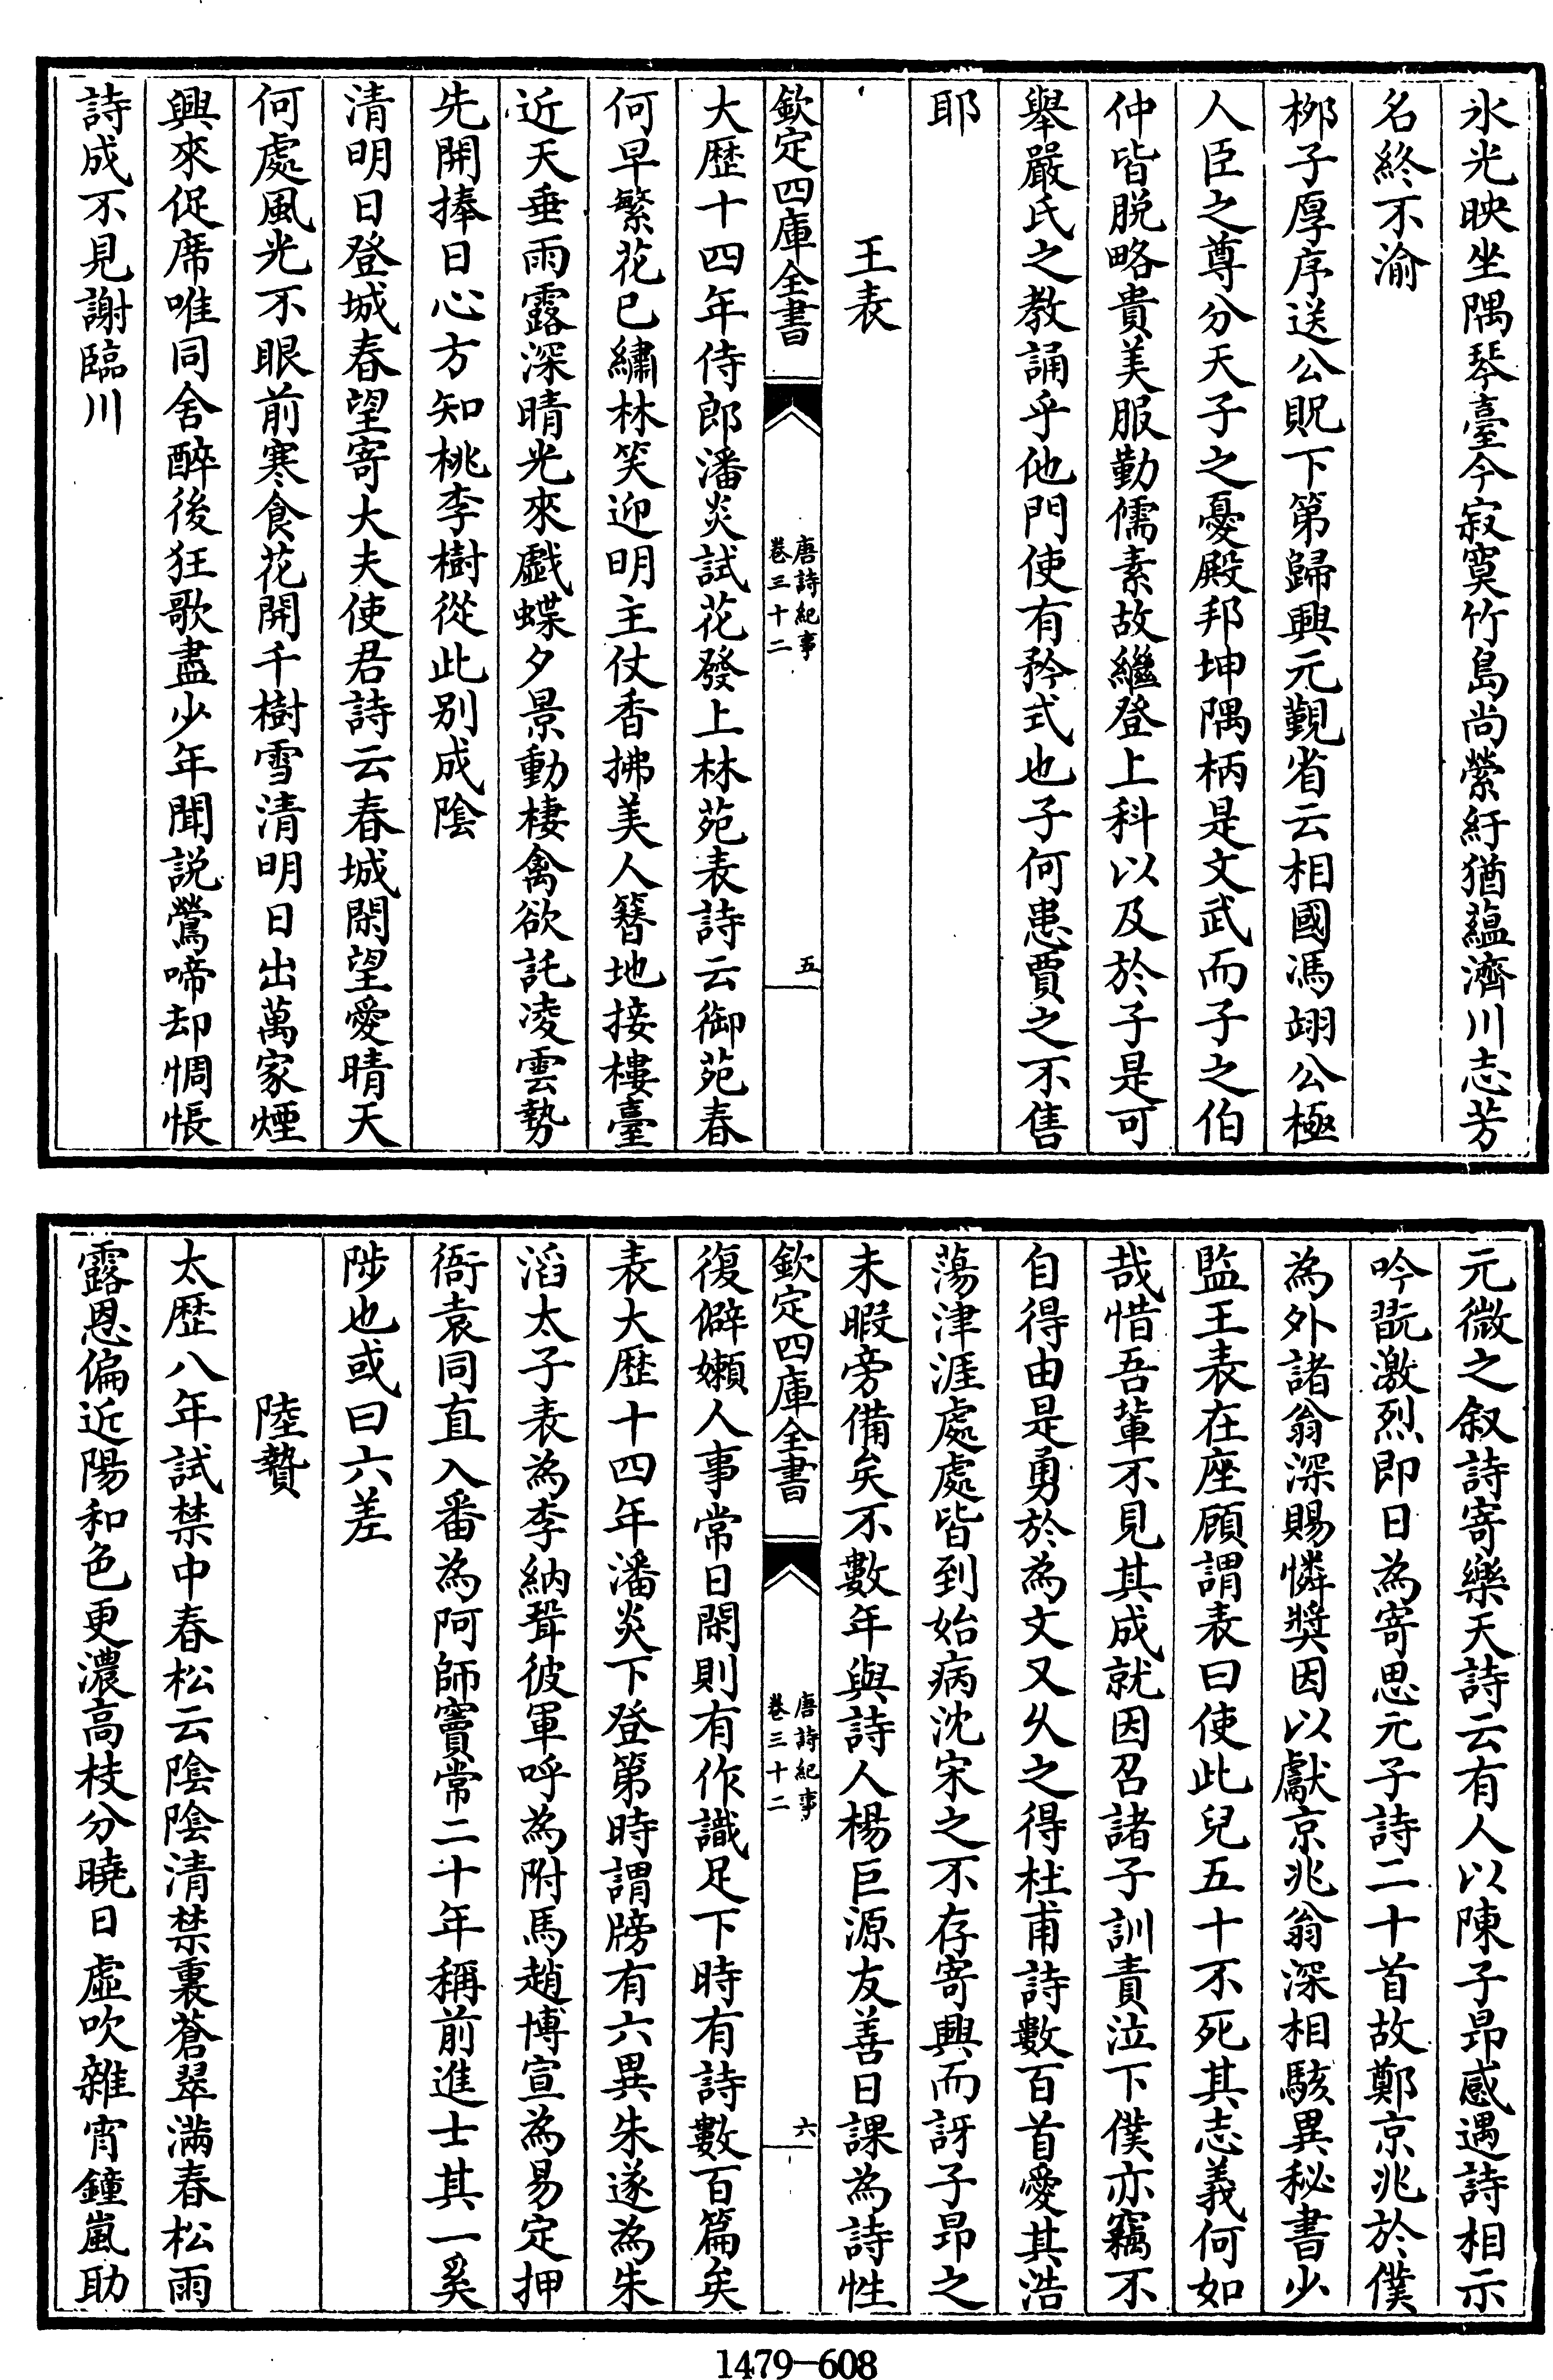 氷光映坐隅琴臺今寂寞竹島尚縈紆猶蘊濟川志芳
名終不渝
柳子厚序送公貺下第歸興元覲省云相國馮翊公極
人臣之尊分天子之憂殿邦坤隅柄是文武而子之伯
仲皆脱略貴美服勤儒素故繼登上科以及於子是可
舉嚴氏之教誦乎他門使有矜式也子何患賈之不售
耶
王表
欽定四庫全書
唐詩紀事
卷三十二
五
大歴十四年侍郎潘炎試花發上林苑表詩云御苑春
何早繁花已繡林笑迎明主仗香拂美人簪地接樓臺
近天垂雨露深晴光來戲蝶夕景動棲禽欲託凌雲勢
先開捧日心方知桃李樹從此別成陰
清明日登城春望寄大夫使君詩云春城閑望愛晴天
何處風光不眼前寒食花開千樹雪清明日出萬家煙
興來促席唯同舍醉後狂歌盡少年聞説鶯啼却惆悵
詩成不見謝臨川
元微之叙詩寄樂天詩云有人以陳子昂感遇詩相示
吟翫激烈即日為寄思元子詩二十首故鄭京兆於僕
為外諸翁深賜憐獎因以獻京兆翁深相駭異秘書少
監王表在座顧謂表曰使此兒五十不死其志義何如
哉惜吾輩不見其成就因召諸子訓責泣下僕亦竊不
自得由是勇於為文又乆之得杜甫詩數百首愛其浩
蕩津涯處處皆到始病沈宋之不存寄興而訝子昂之
未暇旁備矣不數年與詩人楊巨源友善日課為詩性
欽定四庫全書
唐詩紀事
卷三十二
六
復僻嬾人事常日閑則有作識足下時有詩數百篇矣
表大歴十四年潘炎下登第時謂牓有六異朱遂為朱
滔太子表為李納聟彼軍呼為附馬趙博宣為易定押
衙袁同直入番為阿師竇常二十年稱前進士其一奚
陟也或曰六差
陸贄
太歴八年試禁中春松云陰陰清禁裏蒼翠滿春松雨
露恩偏近陽和色更濃高枝分曉日虛吹雜宵鐘嵐助
1479-608